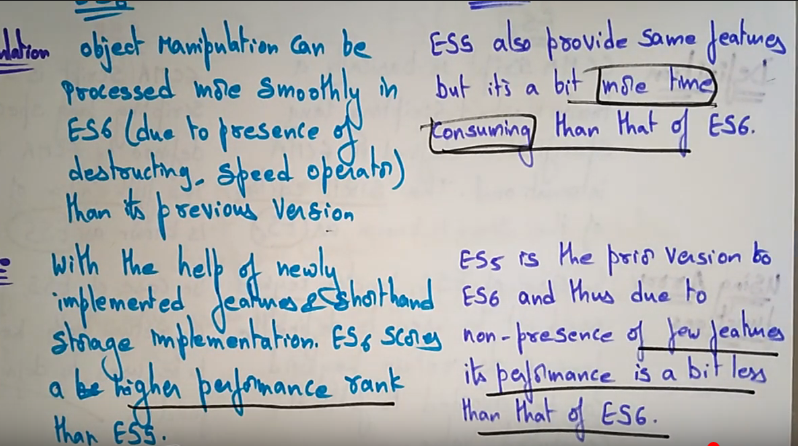 object Manipulation can be
processed more smoothly in
ES6 (due to presence of
destructing, speed operator)
than its previous version
ES5 also provide same features
but it's a bit more time
consuming than that of ES6.
with the help of newly
implemented features & shorthand
storage implementation. ES6 scores
a be higher performance rank
than ES5.
ES5 is the prior version to
ES6 and thus due to
non-presence of few features
its performance is a bit less
than that of ES6.